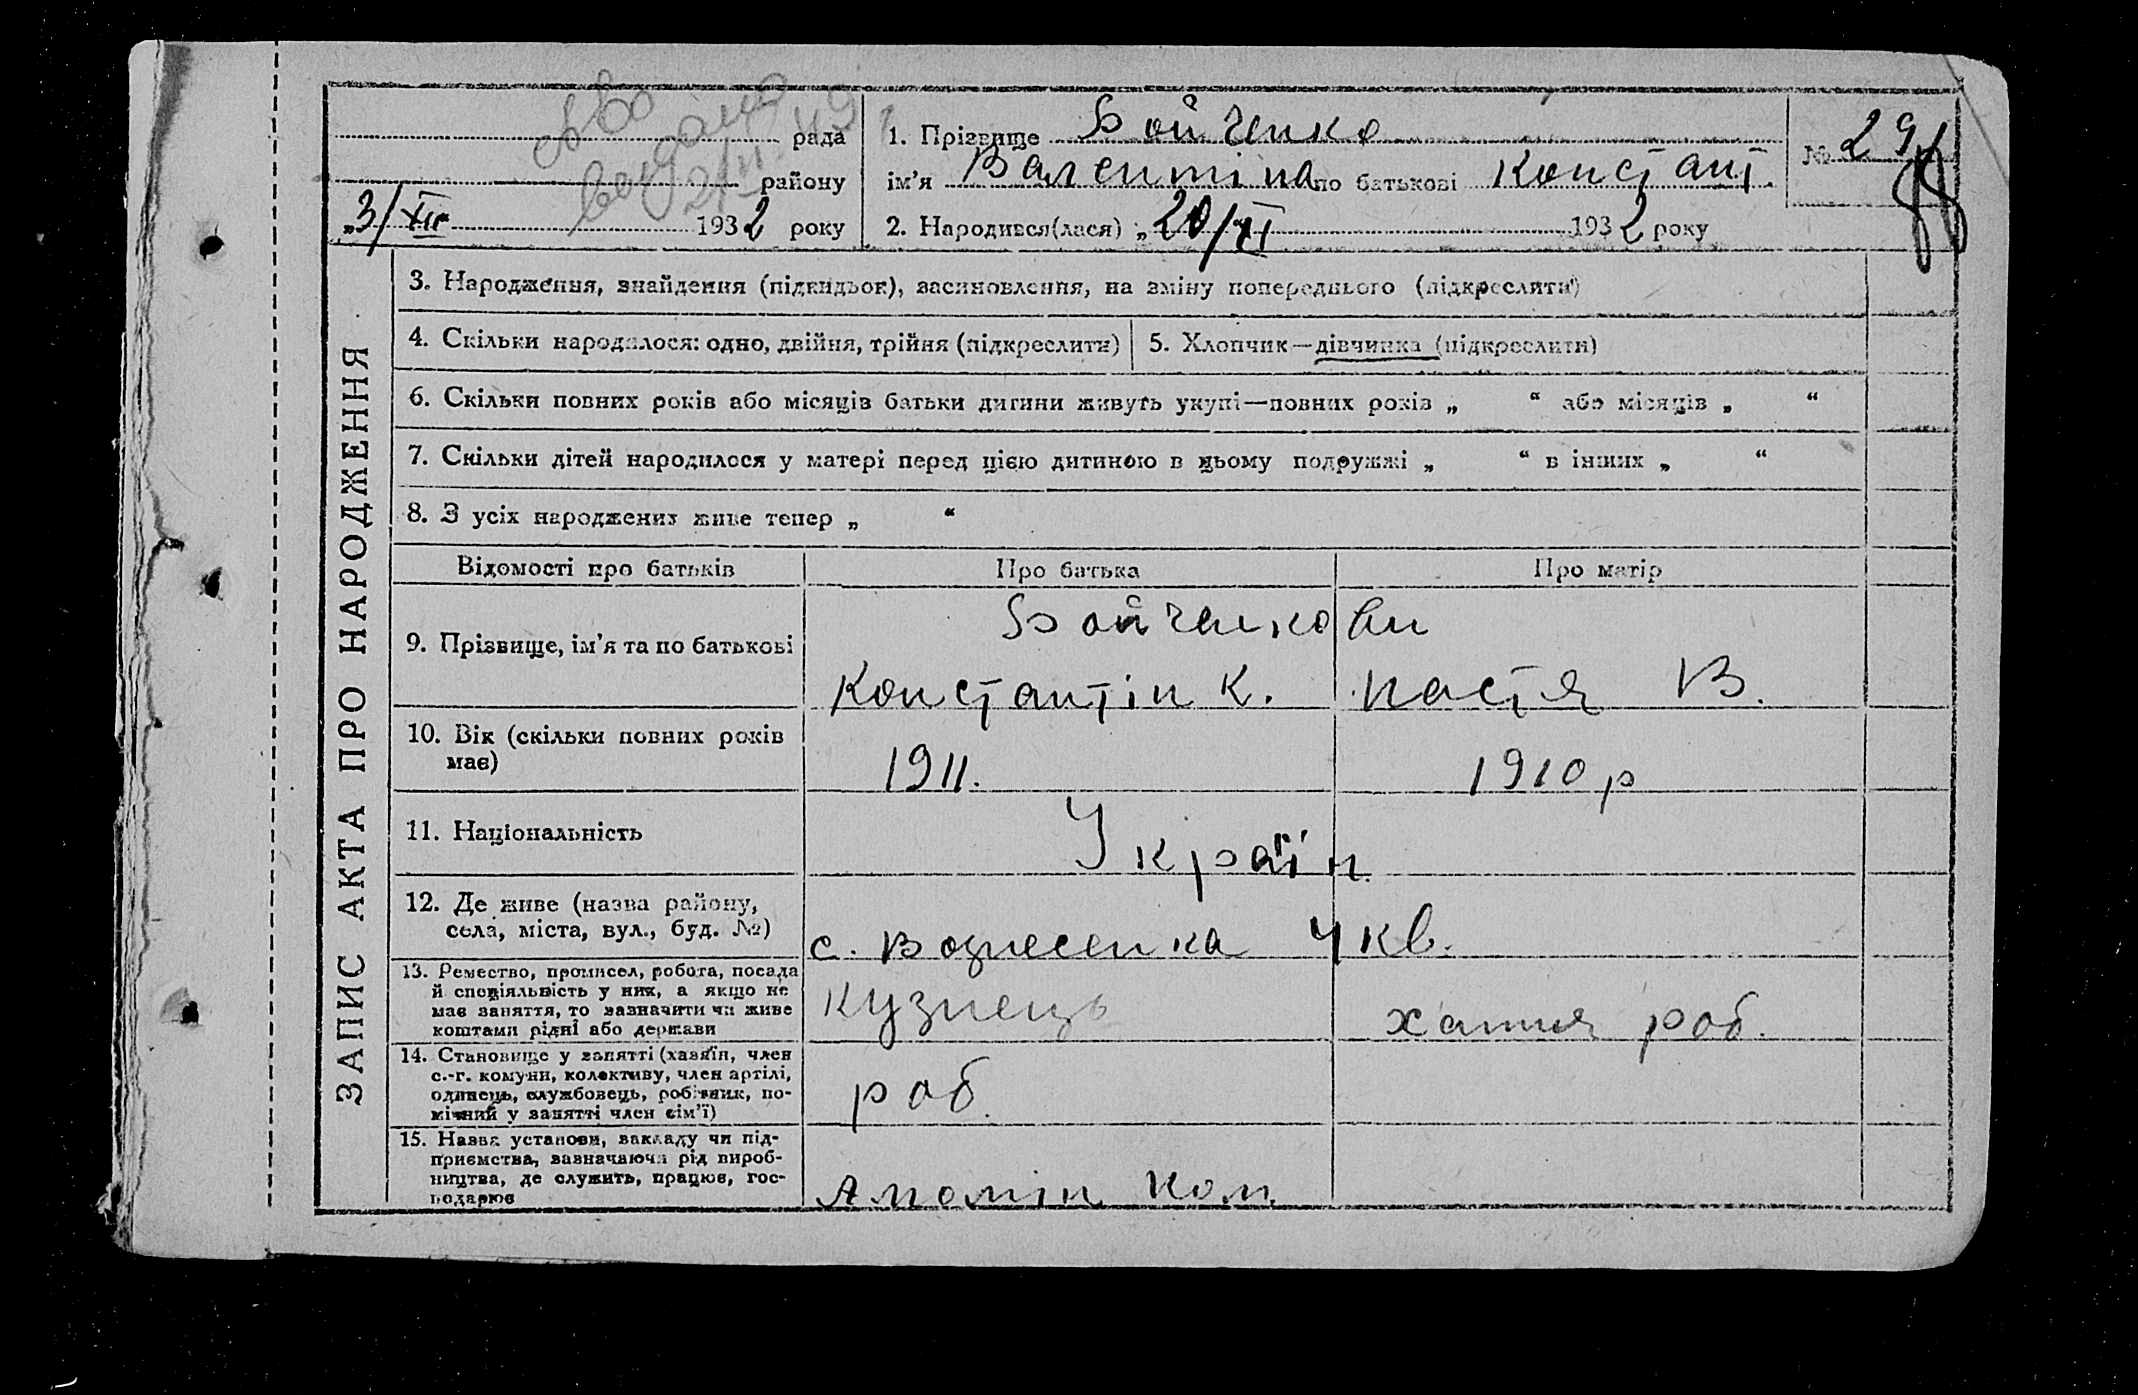 рада
району
„3/XII 1932 року
1. Прізвище Бойченко
ім’я Валентіна по батькові Констант.
2. Народився(лася) „20/XI 1932 року
№ 29
ЗАПИС АКТА ПРО НАРОДЖЕННЯ
3. Народження, знайдення (підкидьок), засиновлення, на зміну попереднього (підкреслити)
4. Скільки народилося: одно, двійня, трійня (підкреслити)
5. Хлопчик—дівчинка (підкреслити)
6. Скільки повних років або місяців батьки дитини живуть укупі—повних років „ “ або місяців „ “
7. Скільки дітей народилося у матері перед цією дитиною в цьому подружжі „ “ в інших „ “
8. З усіх народжених живе тепер „ “
Відомості про батьків
Про батька
Про матір
9. Прізвище, ім’я та по батькові
Бойченкови
Константін К.
Настя В.
10. Вік (скільки повних років
має)
1911.
1910 р
11. Національність
Україн.
12. Де живе (назва району,
села, міста, вул., буд. №)
с. Вознесенка 4 кв.
13. Ремество, промисел, робота, посада
й спеціяльність у них, а якщо не
має заняття, то зазначити чи живе
коштами рідні або держави
кузнець
хатня роб.
14. Становище у занятті (хазяїн, член
с.-г. комуни, колективу, член артілі,
одинець, службовець, робітник, по-
мічний у занятті член сім’ї)
роб.
15. Назва установи, закладу чи під-
приємства, зазначаючи рід вироб-
ництва, де служить, працює, гос-
подарює
Алюмін ком.